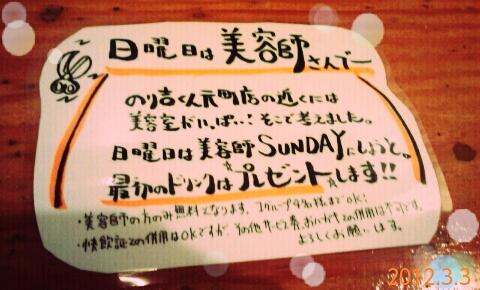 日曜日は美容師さんデー
のり吉くん元町店の近くには
美容室がいっぱい..!そこで考えました。
日曜日は美容師SUNDAYにしようと。
最初のドリンクはプレゼントします!!
・美容師の方のみ無料となります。1グループ4名様までOK!
・快飲証との併用はOKですが、その他サービス券、との併用は
よろしくお願いします。
2012.3.3